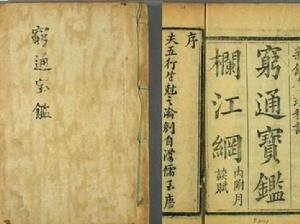 窮通宝鑑
序
夫五行生尅之論創自漢儒至唐
窮通寶鑑
欄江網
内附月
談賦